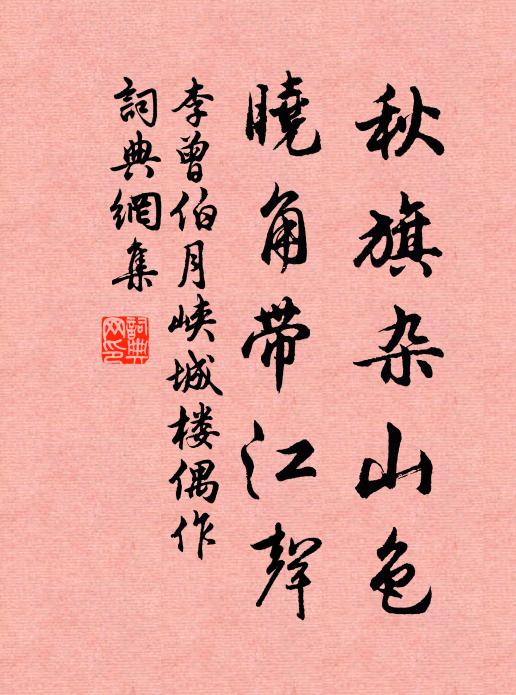 秋旗杂山色
曉角带江聲
李曾伯月峡城楼偶作
詞典網集
詞典网印